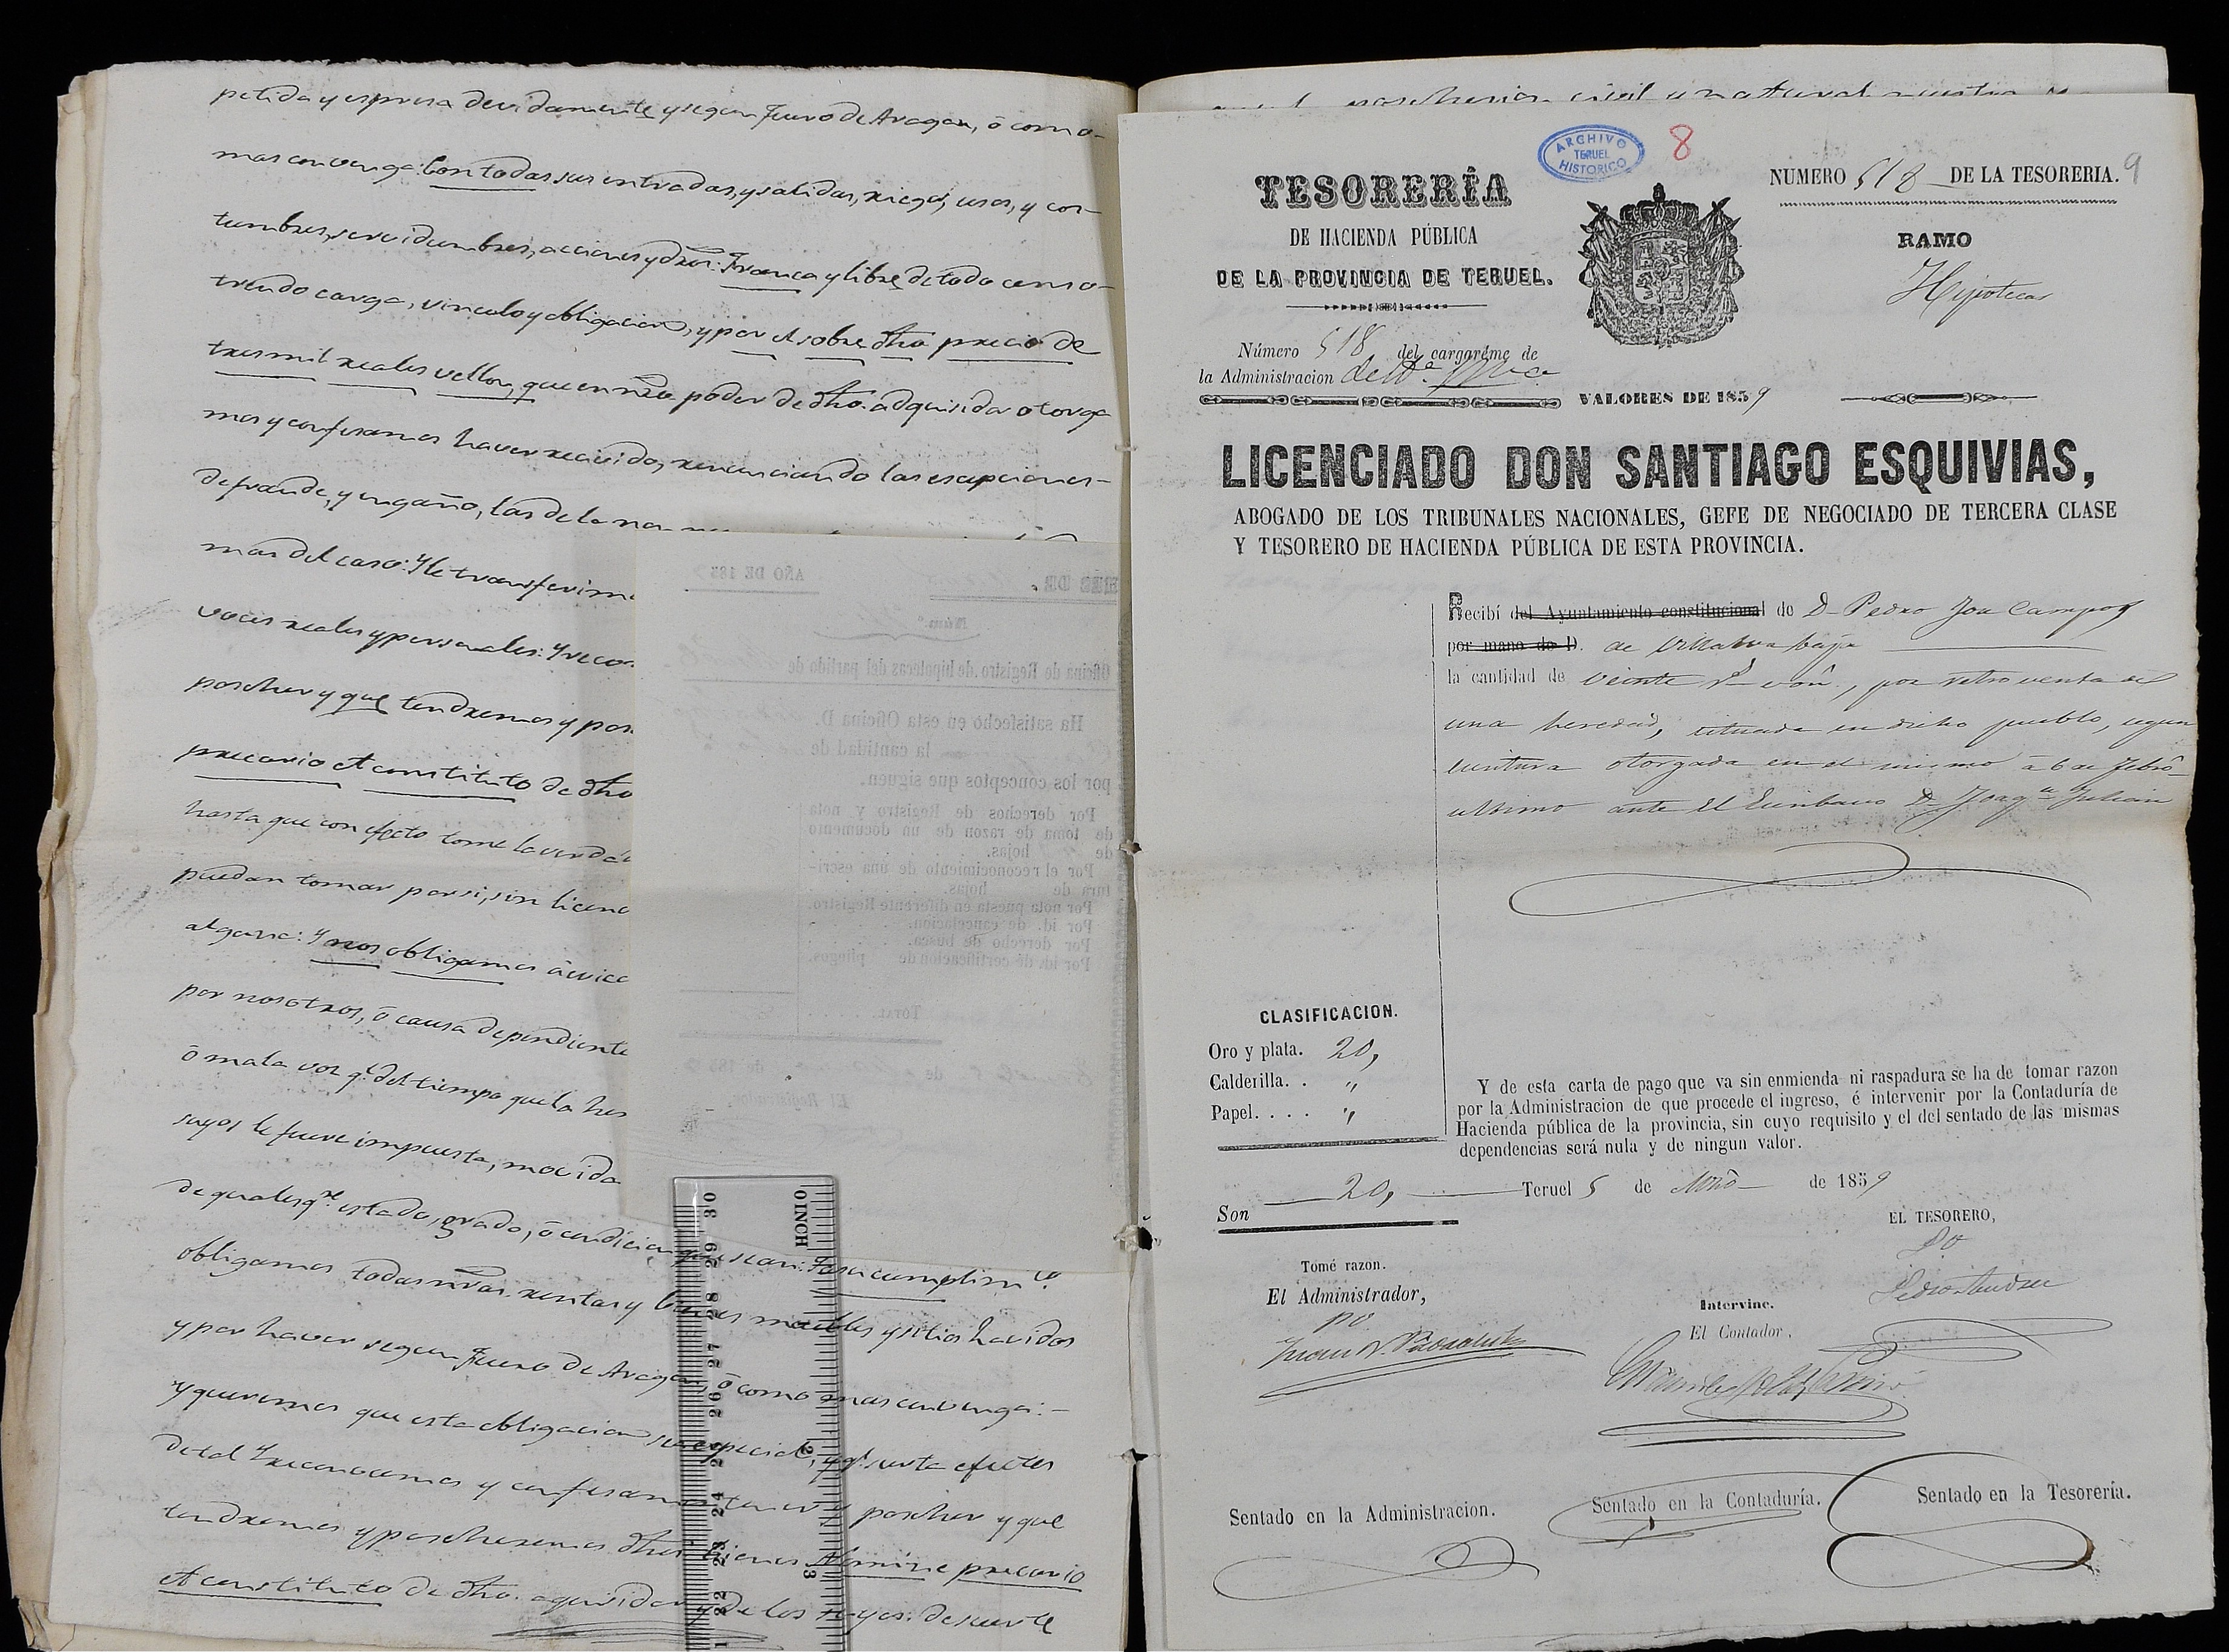 petida y espresa devidamente y segun fuero de Aragon, ó como
mas convenga: Con todas sus entradas, y salidas, riegos, usos, y cos-
tumbres, servidumbres, acciones y dros: Franca y libre de todo censo
treudo carga, vinculo y obligacion, y por el sobre dho precio de
tres mil reales vellon, que en nro poder de dho. adquisidor otorga
mos y confesamos haver recivido, renunciando las escepciones
de fraude, y engaño, las de la
mas del caso: Y le transferim
voces reales y personales: Y reco
poseher y que tendremos y pos
precario et constituto de dho
hasta que con efecto tome la verdá
puedan tomar por si, sin licenc
alguna: Y nos obligamos á evicc
por nosotros, ó causa dependiente
ó mala voz q.e del tiempo que la
suyos le fuere impuesta, movida
de qualesq.e estado, grado, ó condicion que sean: Y a su cumplim.to
obligamos todas nras. rentas y bienes muebles y sitios havidos
y por haver segun fuero de Aragon, ó como mas convenga:
Y queremos que esta obligacion sea especial, y q.e surta efectos
de tal Y reconocemos y confesamos tener y poseher y que
tendremos y poseheremos dhos bienes Nomine precario
et constituto de dho. aquisidor y de los suyos: de suerte
AÑO DE 185
Núm.º
Oficina de Registro de hipotecas del partido de
Ha satisfecho en esta Oficina D.
la cantidad de
por los conceptos que siguen.
Por derechos de Registro y nota
de toma de razon de un documento
de hojas.
Por el reconocimiento de una escri-
tura de hojas.
Por nota puesta en diferente Registro.
Por id. de cancelacion.
Por derecho de busca.
Por id. de certificacion de pliegos.
TOTAL
de de 185
El Registrador,
0 INCH
30
29
28
27
26
25
24
23
22
2
3
ARCHIVO
TERUEL
HISTORICO
8
9
TESORERÍA
DE HACIENDA PÚBLICA
DE LA PROVINCIA DE TERUEL.
NUMERO 518 DE LA TESORERIA.
RAMO
Hipotecas
Número 518 del cargaréme de
la Administracion de
VALORES DE 1859
LICENCIADO DON SANTIAGO ESQUIVIAS,
ABOGADO DE LOS TRIBUNALES NACIONALES, GEFE DE NEGOCIADO DE TERCERA CLASE
Y TESORERO DE HACIENDA PÚBLICA DE ESTA PROVINCIA.
Recibí del Ayuntamiento constitucional de D. Pedro Jon Campos
por mano de D. de Villalva baja
la cantidad de veinte r.s von, por retroventa de
una heredad, situada en dicho pueblo, segun
escritura otorgada en el mismo á 6 de Febro
ultimo ante el Escribano D. Joaq.n Julian
CLASIFICACION.
Oro y plata. 20,
Calderilla. . "
Papel. . . . "
Y de esta carta de pago que va sin enmienda ni raspadura se ha de tomar razon
por la Administracion de que procede el ingreso, é intervenir por la Contaduría de
Hacienda pública de la provincia, sin cuyo requisito y el del sentado de las mismas
dependencias será nula y de ningun valor.
Son 20,
Teruel 5 de Mzo de 1859
EL TESORERO,
PO
Tomé razon.
El Administrador,
PO
Intervine.
El Contador,
Sentado en la Administracion.
Sentado en la Contaduría.
Sentado en la Tesorería.